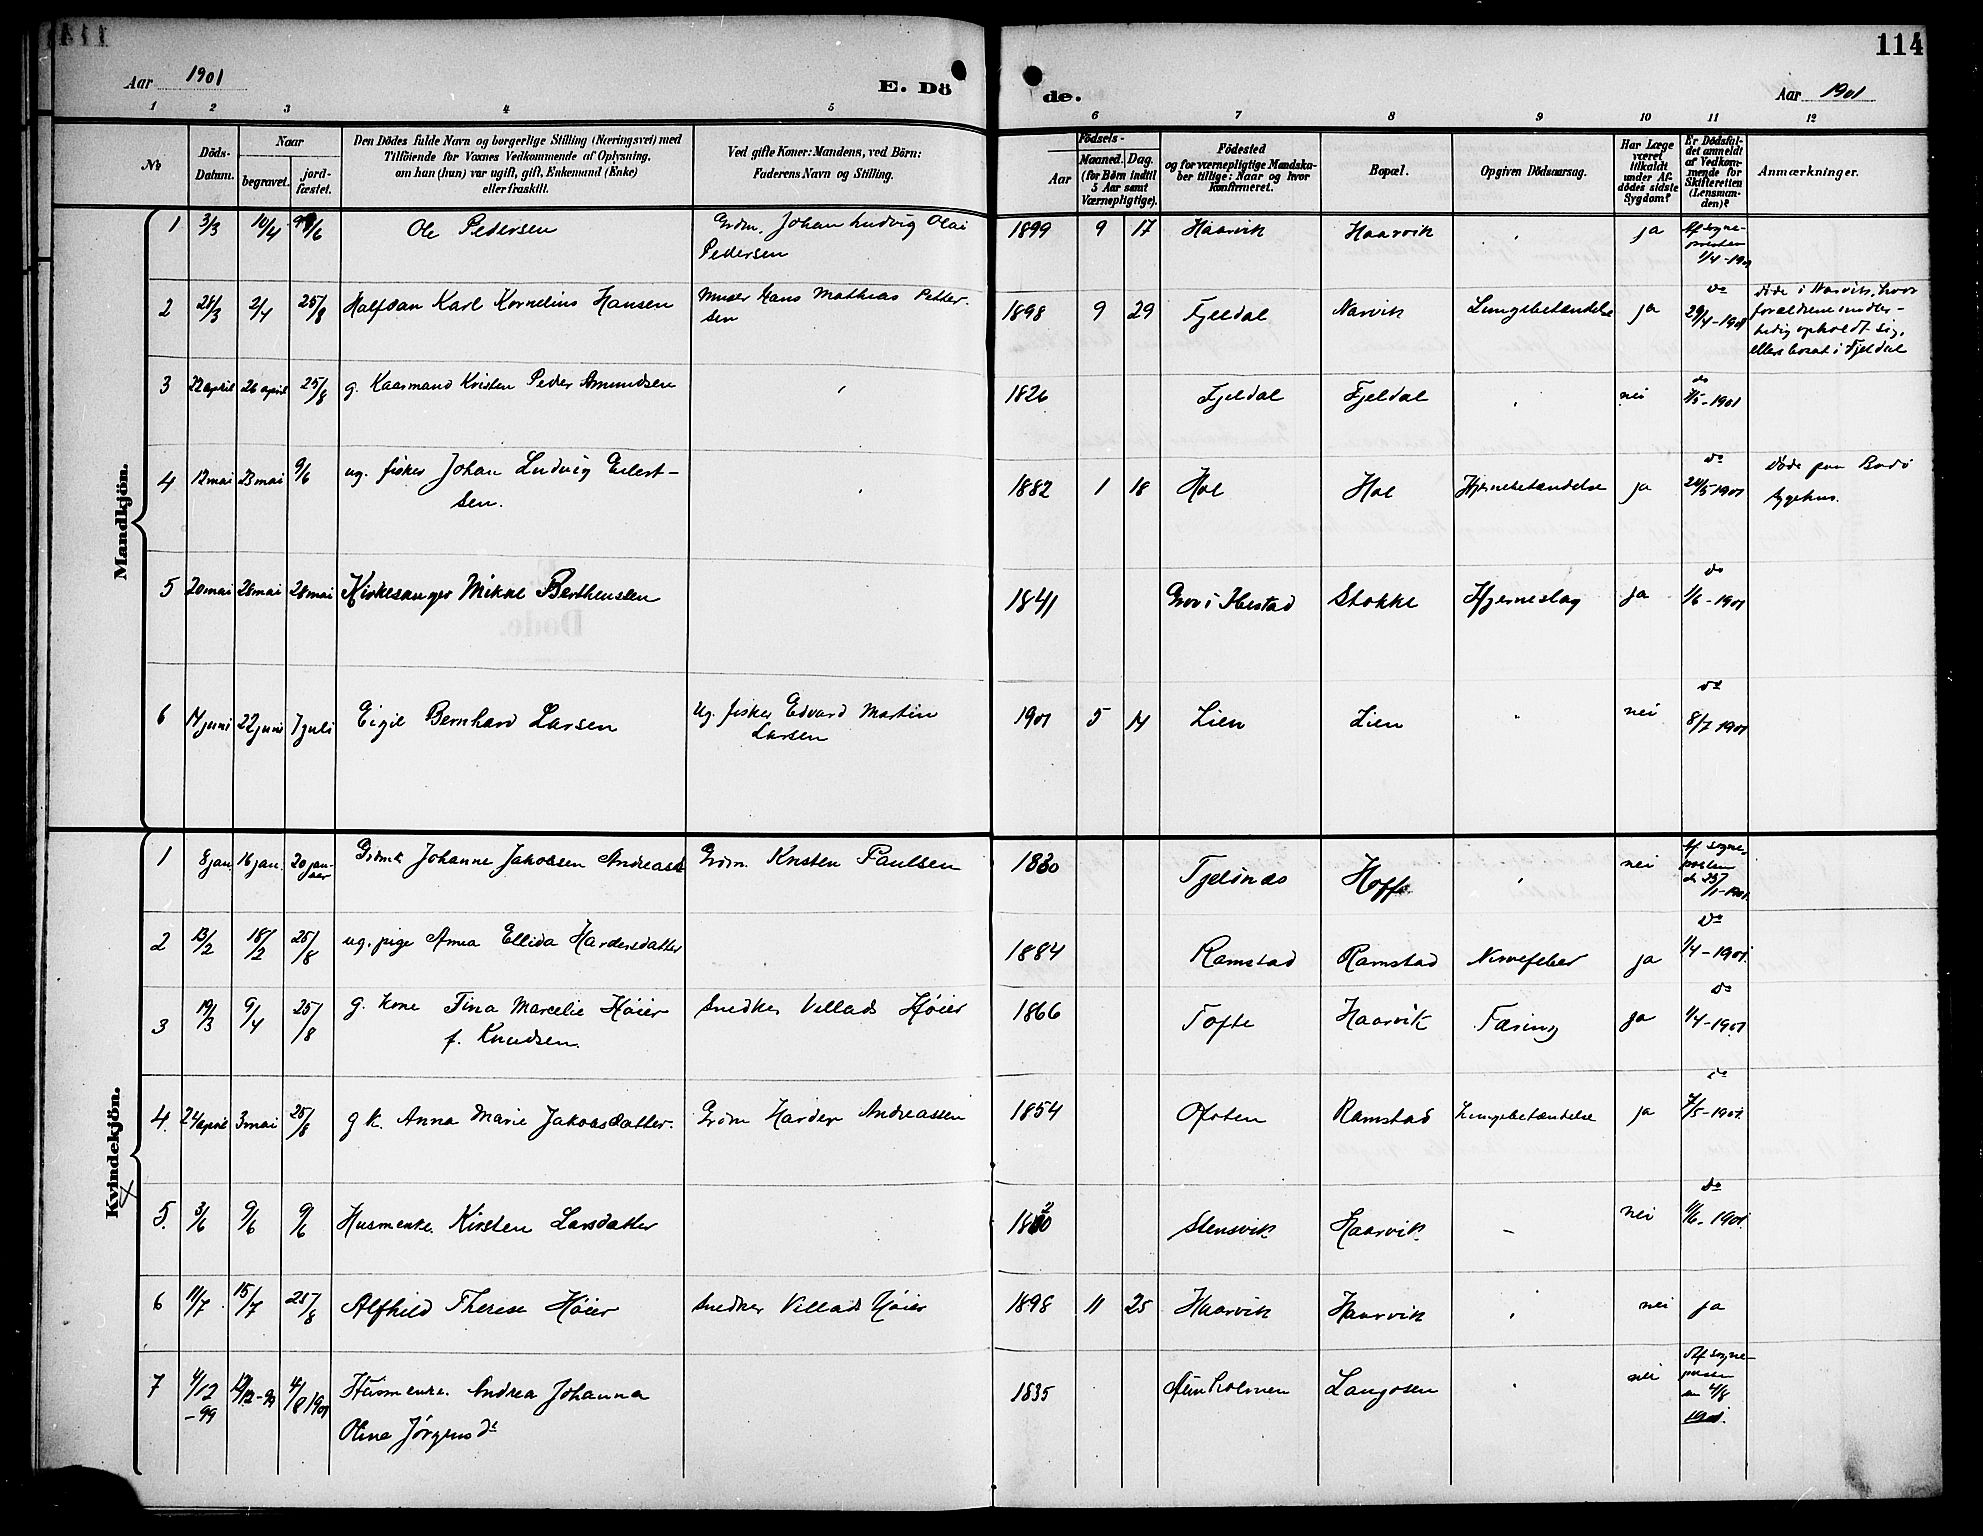 114
Aar 1901
E. Dö
de.
Aar 1901
1 2 3 4 5 6 7 8 9 10 11 12
No
Döds-
Datum.
Naar
begravet.
jord-
fæstet.
Den Dödes fulde Navn og borgerlige Stilling (Næringsvei) med
Tilföiende for Voxnes Vedkommende af Oplysning,
om han (hun) var ugift, gift, Enkemand (Enke)
eller fraskilt.
Ved gifte Koner: Mandens, ved Börn:
Faderens Navn og Stilling.
Födsels-
Aar
Maaned. Dag.
(for Börn indtil
5 Aar samt
Værnepligtige).
Födested
og for værnepligtige Mandska-
ber tillige: Naar og hvor
konfirmeret.
Bopæl.
Opgiven Dödsaarsag.
Har Læge
været
tilkaldt
under Af-
dödes sidste
Sygdom?
Er Dödsfal-
det anmeldt
af Vedkom-
mende for
Skifteretten
(Lensman-
den)?
Anmærkninger.
Mandkjön.
1 3/3 10/4 9/6 Ole Pedersen Grdm. Johan Ludvig Olai
Pedersen
1899 9 17 Haarvik Haarvik ja Af sogne-
presten
1/4-1901
2 28/3 2/4 25/8 Halfdan Karl Kornelius Hansen Muser Hans Mathias Petter-
sen
1898 9 29 Fjeldal Narvik Lungebetændelse ja do
29/4-1901
døde i Narvik, hvor
forældrene midler-
tidig opholdt sig,
ellers bosat i Fjeldal
3 22 april 26 april 25/8 g. Kaarmand Kristen Peder Amundsen
1826 Fjeldal Fjeldal nei do
7/5-1901
4 12 mai 23 mai 9/6 ug. fisker Johan Ludvig Eilert-
sen.
1882 1 18 Hol Hol Hjernebetændelse ja do
24/5 1901
døde paa Bodø
sygehus.
5 20 mai 28 mai 28 mai Kirkesanger Mikal Berthensen
1841 Grov i Ibestad Stokke Hjerneslag ja do
1/6-1901
6 14 juni 22 juni 7 juli Eigil Bernhard Larsen Ug. fisker Edvard Martin
Larsen
1901 5 14 Lien Lien nei do
8/7 1901
Kvindekjön.
1 8 jan. 16 jan. 20 jan-
uar Grdmk Johanne Jakobsen Andreasd Grdm. Kristen Paulsen
1830 Tjelsnæs Hoff nei Af sogne-
presten
1/1-1901
2 13/2 18/2 25/8 ug. pige Anna Ellida Hardersdatter
1884 Ramstad Ramstad Nervefeber ja do
1/4-1901
3 19/3 9/4 25/8 g. kone Tina Marcelie Høier
f. Knudsen.
Snedker Villads Høier
1866 Tofte Haarvik Tæring ja do
1/4-1901
4. 24 april 3 mai 25/8 g k. Anna Marie Jakobsdatter. Grdm Harder Andreassen
1854 Ofoten Ramstad Lungebetændelse ja do
7/5-1901
5. 3/6 9/6 9/6 Husmenke. Kirsten Larsdatter
Stensvik Haarvik nei do
11/6-1901
6 11/7 15/7 25/8 Alfhild Therese Høier Snedker Villads Høier
1898 11 25 Haarvik Haarvik nei ja
7 4/12
-99 4/8 1901 Husmenke. Andrea Johanna
Olina Jørgensd.
1835 Langosen nei Af sogne-
presten
4/8
1901.